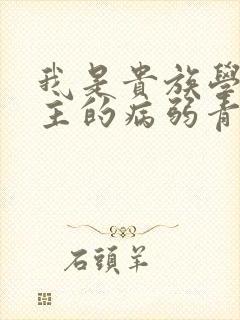 我是貴族學
主的病弱青
石頭羊